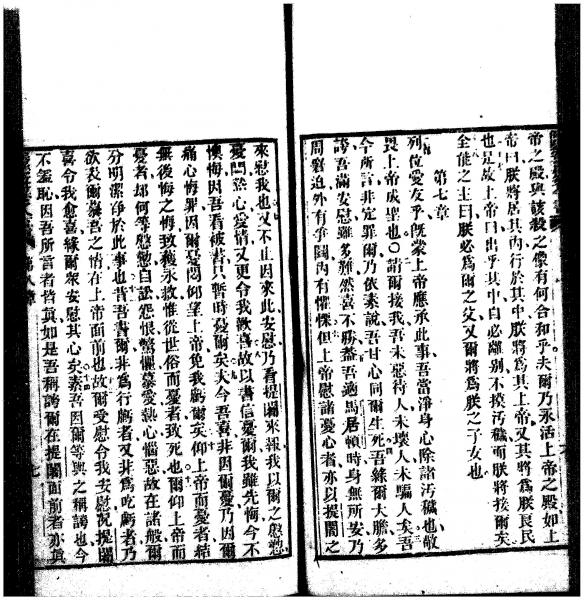 帝之殿與該殺之像有何合和乎夫爾乃永活上帝之殿如上
帝曰朕將居其內行於其中朕將為其上帝又其將為朕良民
也是故上帝曰出乎其中自必離別不摸汚穢而朕將接爾矣
全能之主曰朕必為爾之父又爾將為朕之子女也
第七章
列位愛友乎既蒙上帝應承此事吾當淨身心除諸汚穢也敬
畏上帝成聖也〇請爾接我吾未惡待人未壞人未騙人矣吾
今所言非定罪爾乃依素說吾甘心同爾生死吾緣爾大膽多
誇吾滿安慰雖多難然喜不勝蓋吾適馬居頓時身無所安乃
周窘迫外有爭鬪內有懼慄但上帝慰諸憂心者亦以提閣之
來慰我也又不止因來此安慰乃看提閣來報我以爾之慰愁
憂悶於心愛情又更令我歡喜故以書信憂爾我雖先悔今不
懊悔因吾看彼書只暫時憂爾矣夫今吾喜非因爾憂乃因爾
痛心悔罪因爾憂悶仰望上帝免我虧爾矣仰上帝而憂者結
無後悔之悔致獲永救惟從世俗而憂者致死也爾仰上帝而
憂者却何等慇懃自訟怨恨驚懼慕愛熱心惱惡故在諸般爾
分明潔淨於此事也昔吾書爾非為行虧者又非為吃虧者乃
欲表爾慕吾之情在上帝面前也故爾受慰令我安慰况提閣
喜令我愈喜緣爾眾安慰其心矣素吾因爾等與之稱誇也今
不羞恥因吾所言者皆真如是吾稱誇爾在提閣面前者亦真